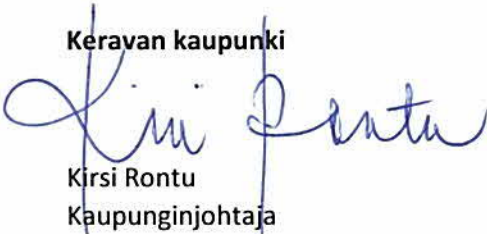 Keravan kaupunki
Kirsi Rontu
Kirsi Rontu
Kaupunginjohtaja